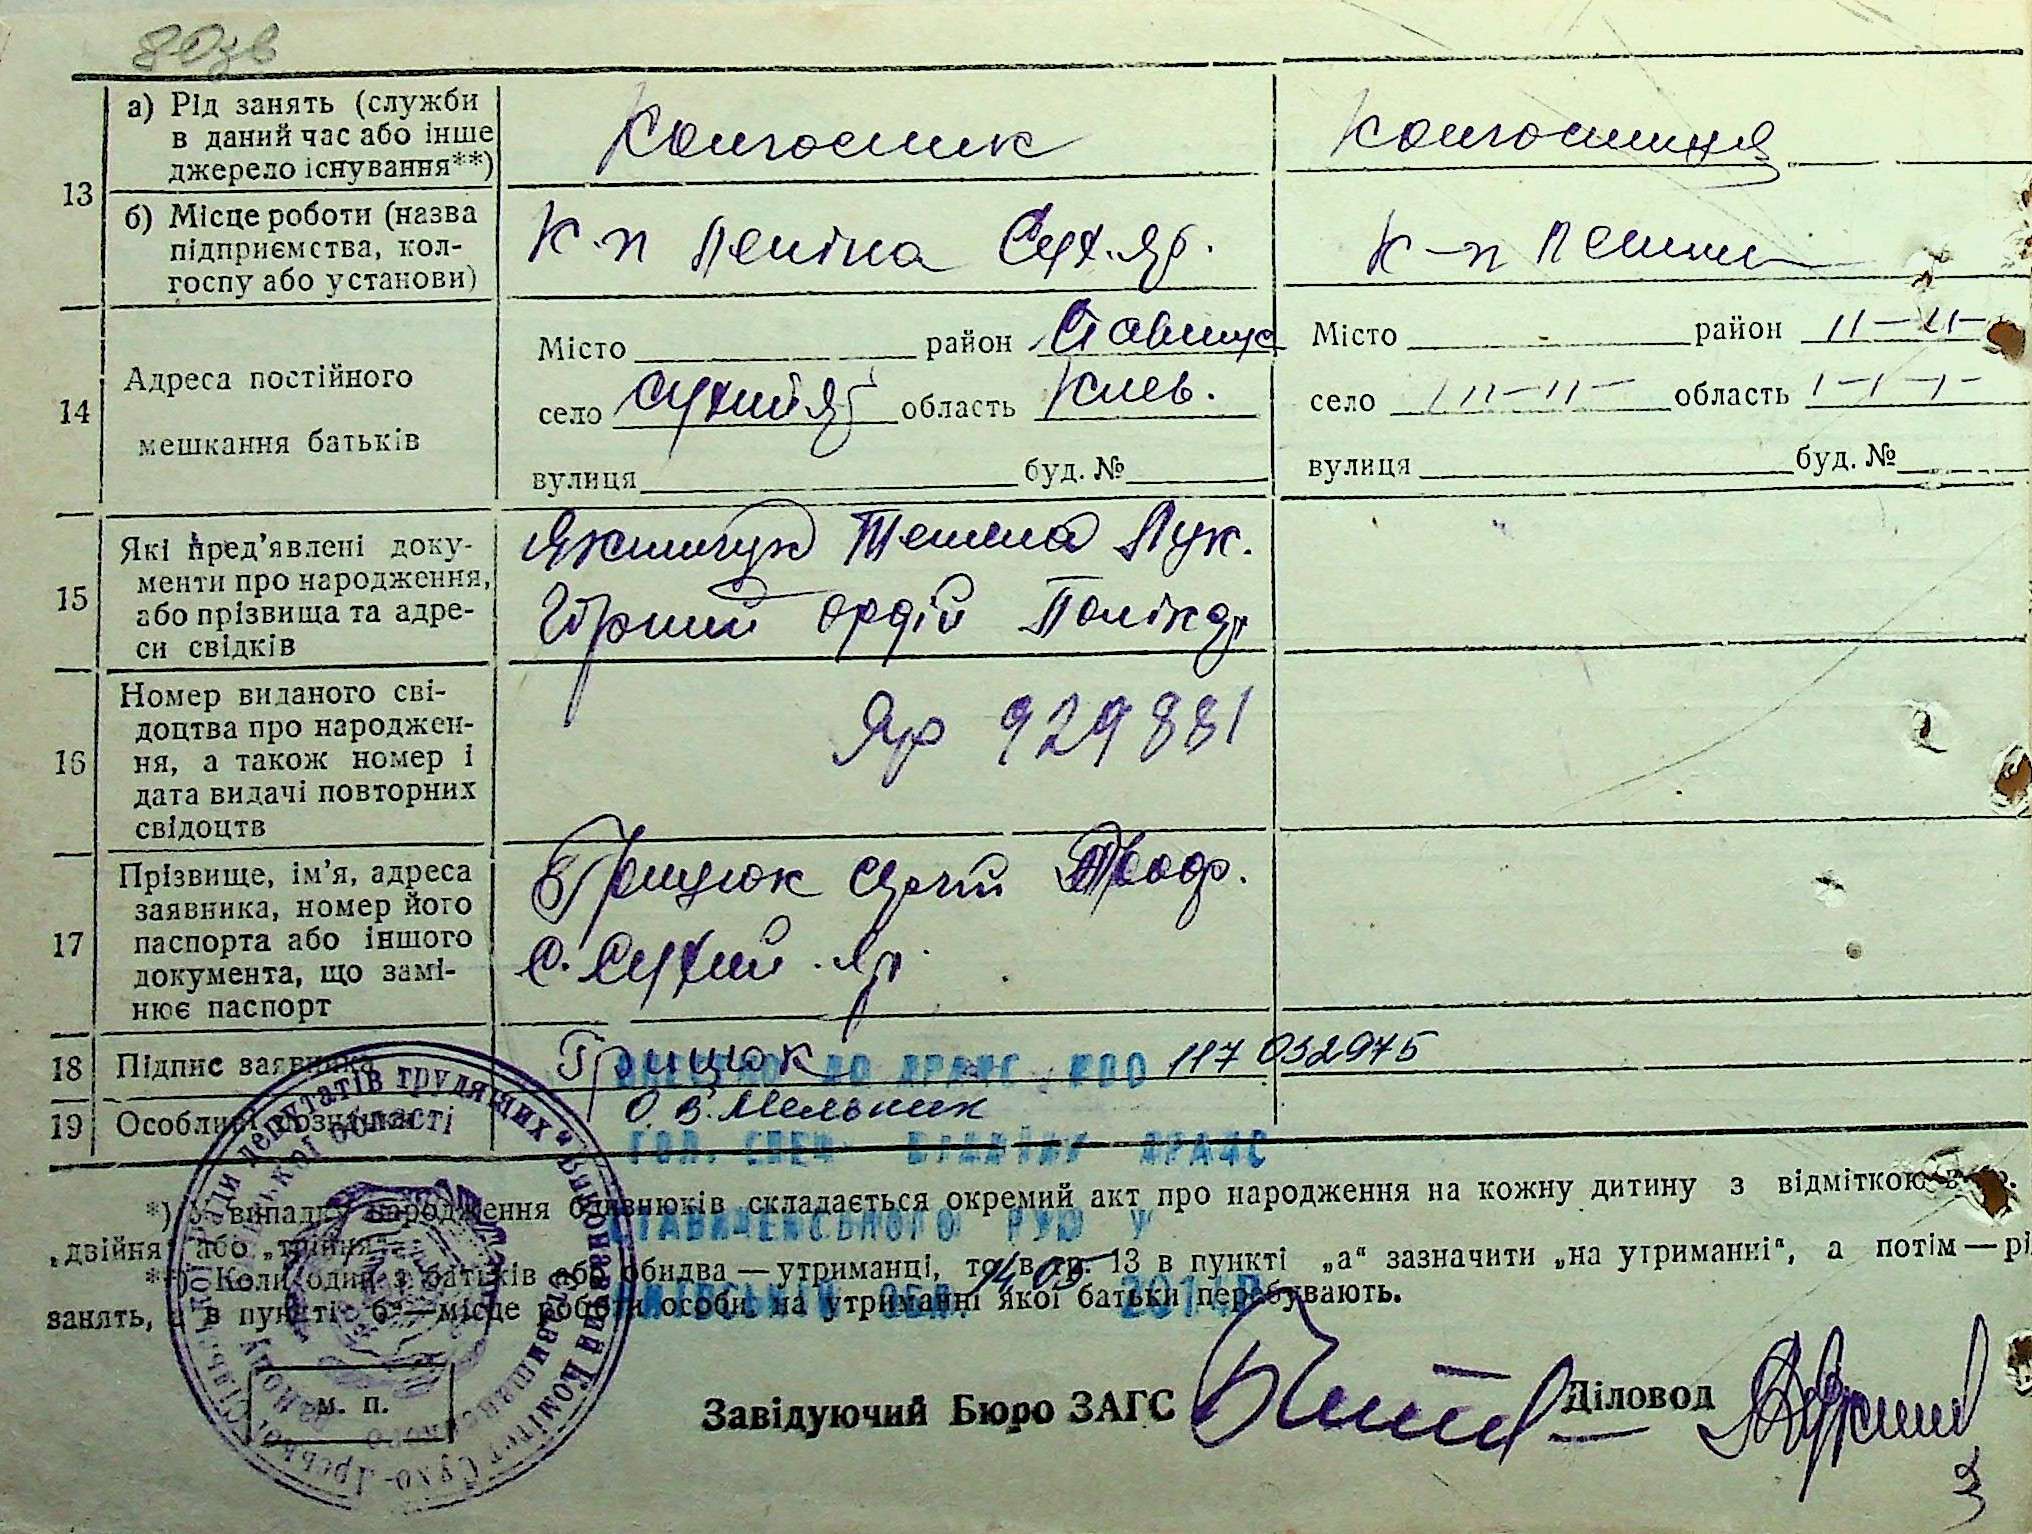 80зв
13
а) Рід занять (служби
в даний час або інше
джерело існування**)
Колгоспник
Колгоспниця
б) Місце роботи (назва
підприємства, кол-
госпу або установи)
К-п Леніна Сух.-Яр.
К-п Леніна
14
Адреса постійного
мешкання батьків
Місто район Ставищ
село Сухий Яр область Київ.
вулиця буд. №
Місто район -11-11-
село -11-11- область -1-1-1-
вулиця буд. №
15
Які пред'явлені доку-
менти про народження,
або прізвища та адре-
си свідків
Лук.
ордій Полікар
16
Номер виданого сві-
доцтва про народжен-
ня, а також номер і
дата видачі повторних
свідоцтв
Яр 929881
17
Прізвище, ім'я, адреса
заявника, номер його
паспорта або іншого
документа, що замі-
нює паспорт
Грищюк Сергій
с. Сухий Яр.
18
Підпис заявника
Грищюк
ВНЕСЕНО ДО ДРАЦС 117 032975
19
Особливі позначки
О.В. Мельник
ГОЛ. СПЕЦ ВІДДІЛУ ДРАЦС
*) У випадку народження близнюків складається окремий акт про народження на кожну дитину з відміткою
СТАВИЩЕНСЬКОГО РУЮ У
„двійня“ або „трійня“.
**) Коли один з батьків або обидва — утриманці, то в гр. 13 в пункті „а“ зазначити „на утриманні“, а потім — рі
14 05
КИЇВСЬКІЙ ОБЛ. 2014р
занять, а в пункті „б“ — місце роботи особи, на утриманні якої батьки перебувають.
Виконавчий Комітет Сухо-Ярської Сільської Ради депутатів трудящих
Ставищанського району Київської області
м. п.
Завідуючий Бюро ЗАГС
Діловод